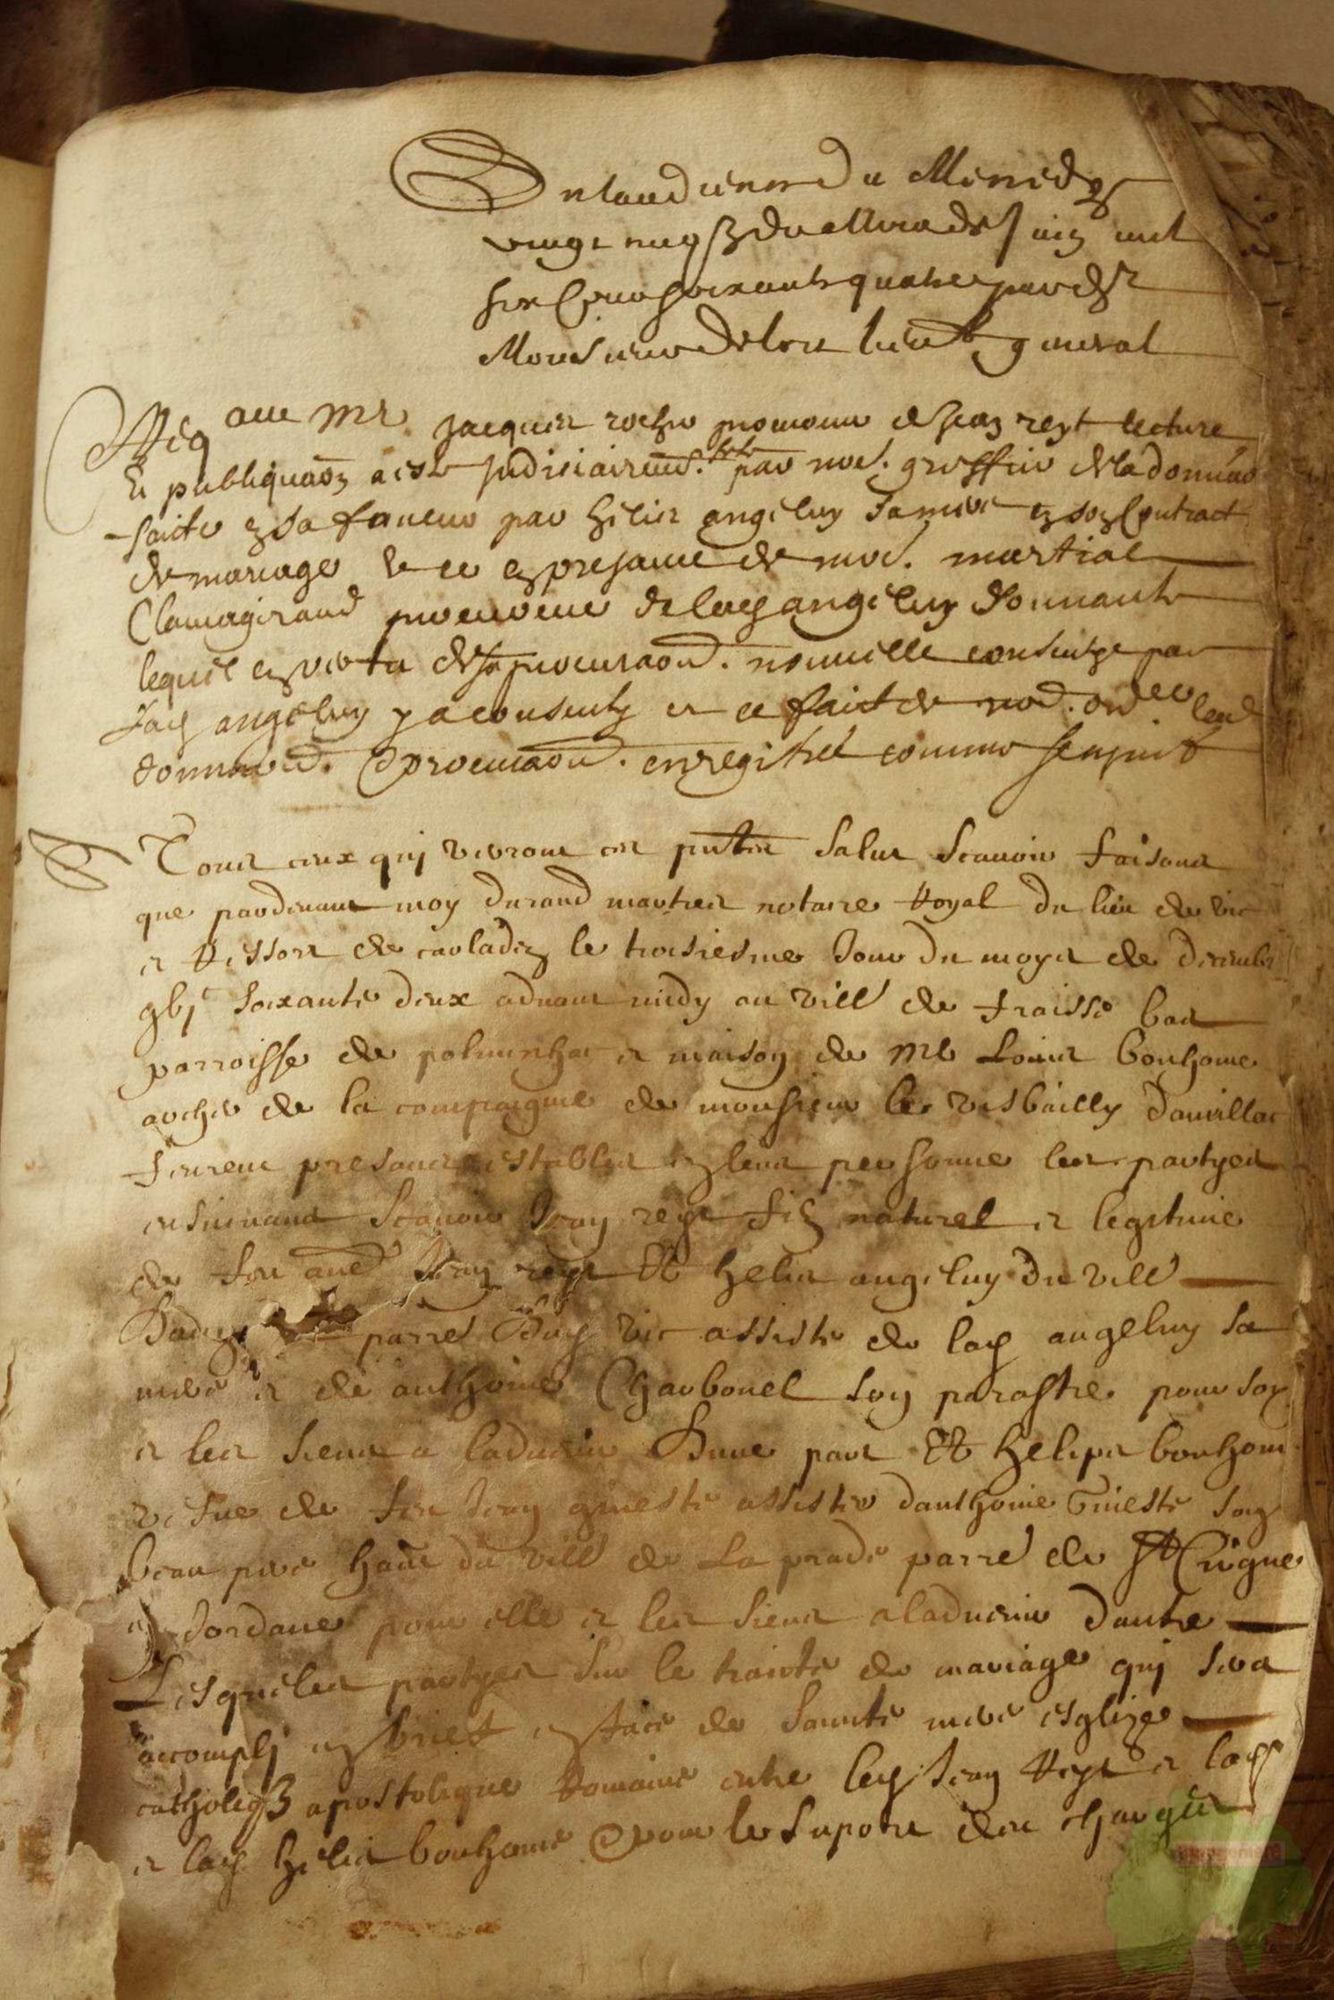 En laudience du Mercredy
vingt cinq du mois de Juin mil
six cens soixante quatre par dt
Monsieur de lieut general
aue Mr Jacques procureur de Jean reyt lecture
Et publiquaon a este Judiciairemt. faite par nre. greffier de la donnaon
faicte en sa faueur par helix angeluy sa mere en son Contract
de mariage le ce en presance de me. martial
Clamagirand procureur de lad angeluy donnante
lequel en vertu de sa procuraon. nouuelle par
lad angeluy y a consenty et ce faict de nre. ord
donnaon. & procuraon. enregistrée comme sensuit
A Tous ceux quj verront ces pntes Salut Scauoir faisons
que pardeuant moy durand martres notaire Royal du lieu de vic
et Ressort de carladez le troisiesme Jour du moys de decembre
gbjc soixante deux aduant midy au vill de fraisse bas
parroisse de polminhac et maison de Me Louis bonhome
archer de la compaignie de monsieur le visbailly daurillac
feurent presans establis en leur personne les partyes
ensuiuans Scauoir Jean reyt filz naturel et legitime
de feu aue Jean reyt Et helix angeluy du vill
parre dud vic assiste de lad angeluy sa
mere et de anthoine Charbonel son parastre pour soy
et les siens a laduenir Dune part Et helips bonhome
vefue de feu Jean gineste assistee danthoine Gineste son
beau pere habt du vill de La prade parre de st Cirgue
et Jordane pour elle et les siens a laduenir dautre
Lesquelles partyes sur le traicte de mariage quj sera
accomplj en brief en face de saincte mere esglize
catholicq apostolique Romaine entre led Jean Reyt et lad
et lad helix bonhome & pour le suport des charges